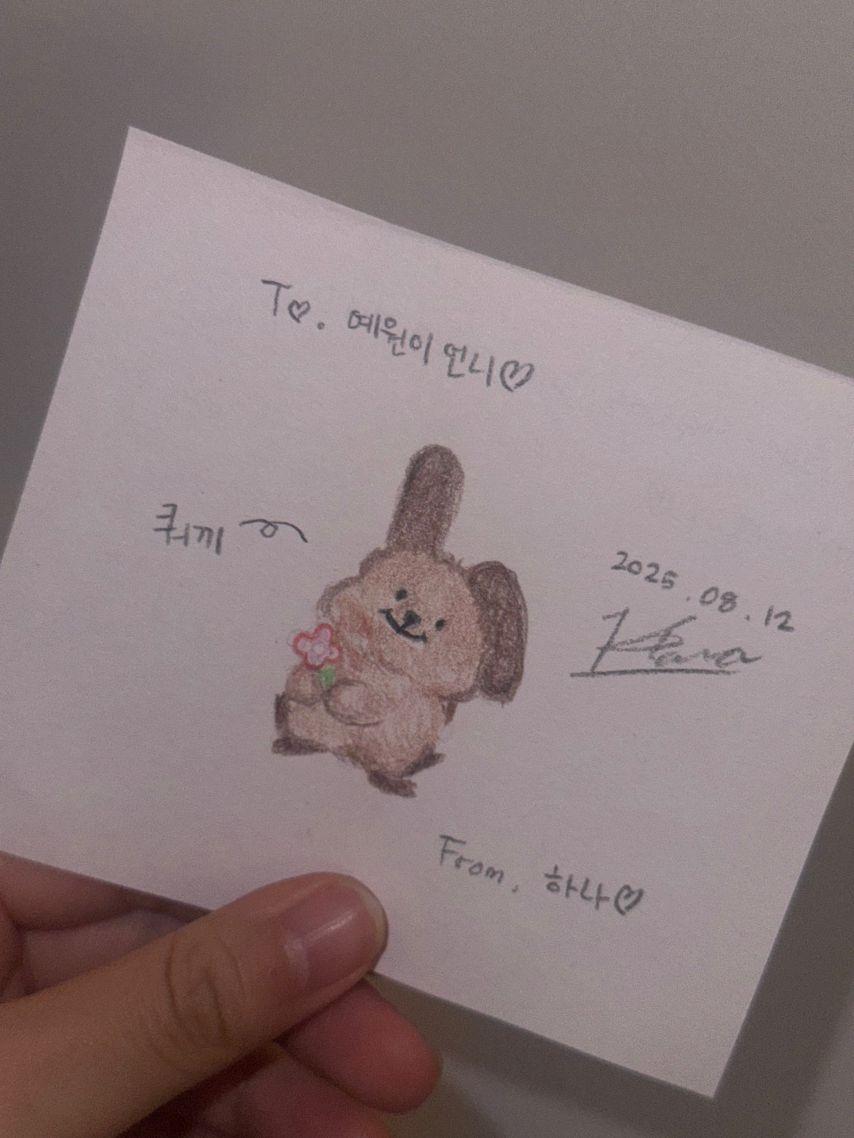 To. 예원이 언니♡
쿼끼
2025.08.12
Hana
From. 하나♡